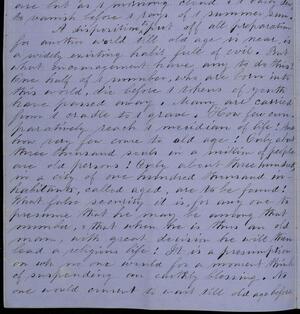 are but as a morning cloud & early dew
to vanish before t rays of t summer sun.
A disposition to put off all preparation
for another world till old age is near is
a widely existing habit full of evil. But
what encouragement have any to do this?
One half of t number, who are born into
this world, die before t tokens of youth
have passed away. Many are carried
from t cradle to t grave. How few com-
paratively reach t meridian of life! And
how very few come to old age! Only abt
three thousand souls in a million of people
are old persons! Only about three hundred
in a city of one hundred thousand in-
habitants, called aged, are to be found!
What false security it is for any one to
presume that he may be among that
number, & that when he is thus an old
man, with great decision he will then
lead a religious life! It is a presumption
on wh. no one would for a moment think
of suspending an earthly blessing. No
one would consent to wait till old age before